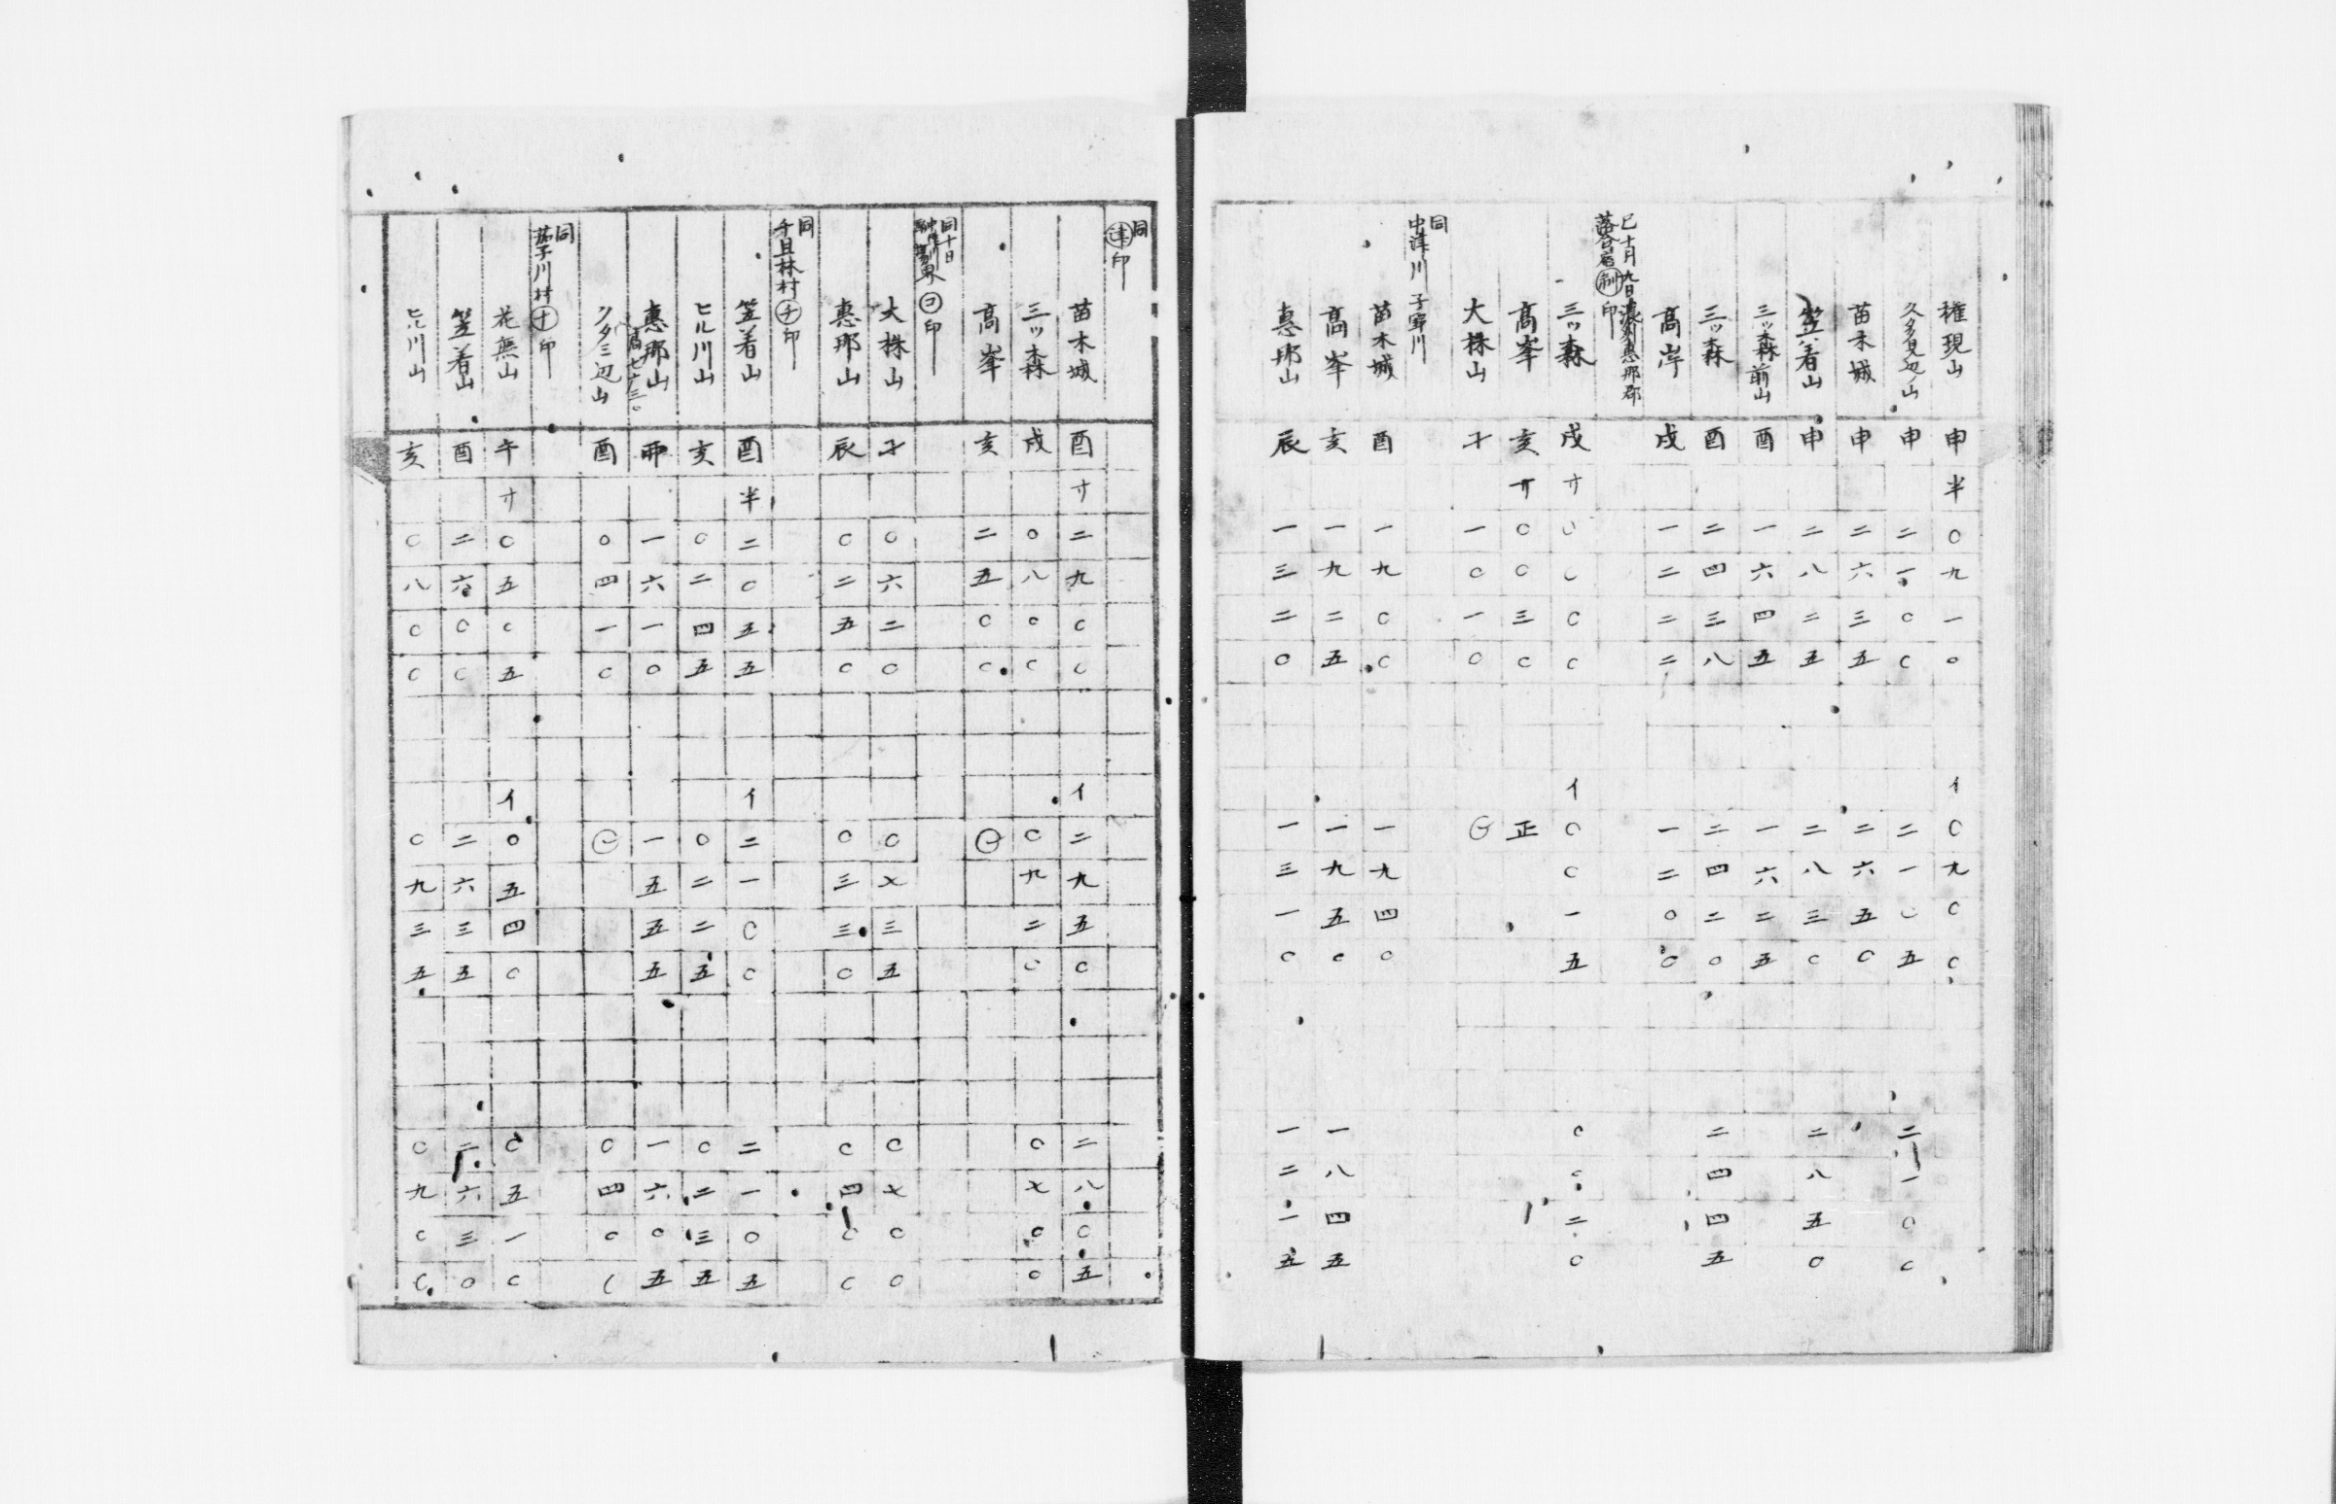 権現山 申 半 〇 九 一 〇 イ 〇 九 〇 〇
久多見辺ノ山 申 二 一 〇 〇 二 一 〇 五 二 一 〇 〇
苗木城 申 二 六 三 五 二 六 五 〇
笠着山 申 二 八 二 五 二 八 三 〇 二 八 五 〇
三ッ森前山 酉 一 六 四 五 一 六 二 五
三ッ森 酉 二 四 三 八 二 四 二 〇 二 四 四 五
高岸 戌 一 二 二 二 一 二 〇 〇
巳十月九日濃州恵那郡
落合宿 印
三ッ森 戌 サ 〇 〇 〇 〇 イ 〇 〇 一 五 〇 〇 二 〇
高峯 亥 サ 〇 〇 三 〇 正
大株山 子 一 〇 一 〇
同
中津川 子野川
苗木城 酉 一 九 〇 〇 一 九 四 〇
高峯 亥 一 九 二 五 一 九 五 〇 一 八 四 五
恵那山 辰 一 三 二 〇 一 三 一 〇 一 二 一 五
同
津印
苗木城 酉 サ 二 九 〇 〇 イ 二 九 五 〇 二 八 〇 五
三ッ森 戌 〇 八 〇 〇 〇 九 二 〇 〇 七 〇 〇
高峯 亥 二 五 〇 〇
同十日
コ印
大株山 子 〇 六 二 〇 〇 七 三 五 〇 七 〇 〇
恵那山 辰 〇 二 五 〇 〇 三 三 〇 〇 四 〇 〇
同
千旦林村 チ印
笠着山 酉 半 二 〇 五 五 イ 二 一 〇 〇 二 一 〇 五
ヒル川山 亥 〇 二 四 五 〇 二 二 五 〇 二 三 五
恵那山 卯 一 六 一 〇 一 五 五 五 一 六 〇 五
クタミ辺山 酉 〇 四 一 〇 〇 四 〇 〇
同
茄子川村 ナ印
花無山 午 サ 〇 五 〇 五 イ 〇 五 四 〇 〇 五 一 〇
笠着山 酉 二 六 〇 〇 二 六 三 五 二 六 三 〇
ヒル川山 亥 〇 八 〇 〇 〇 九 三 五 〇 九 〇 〇